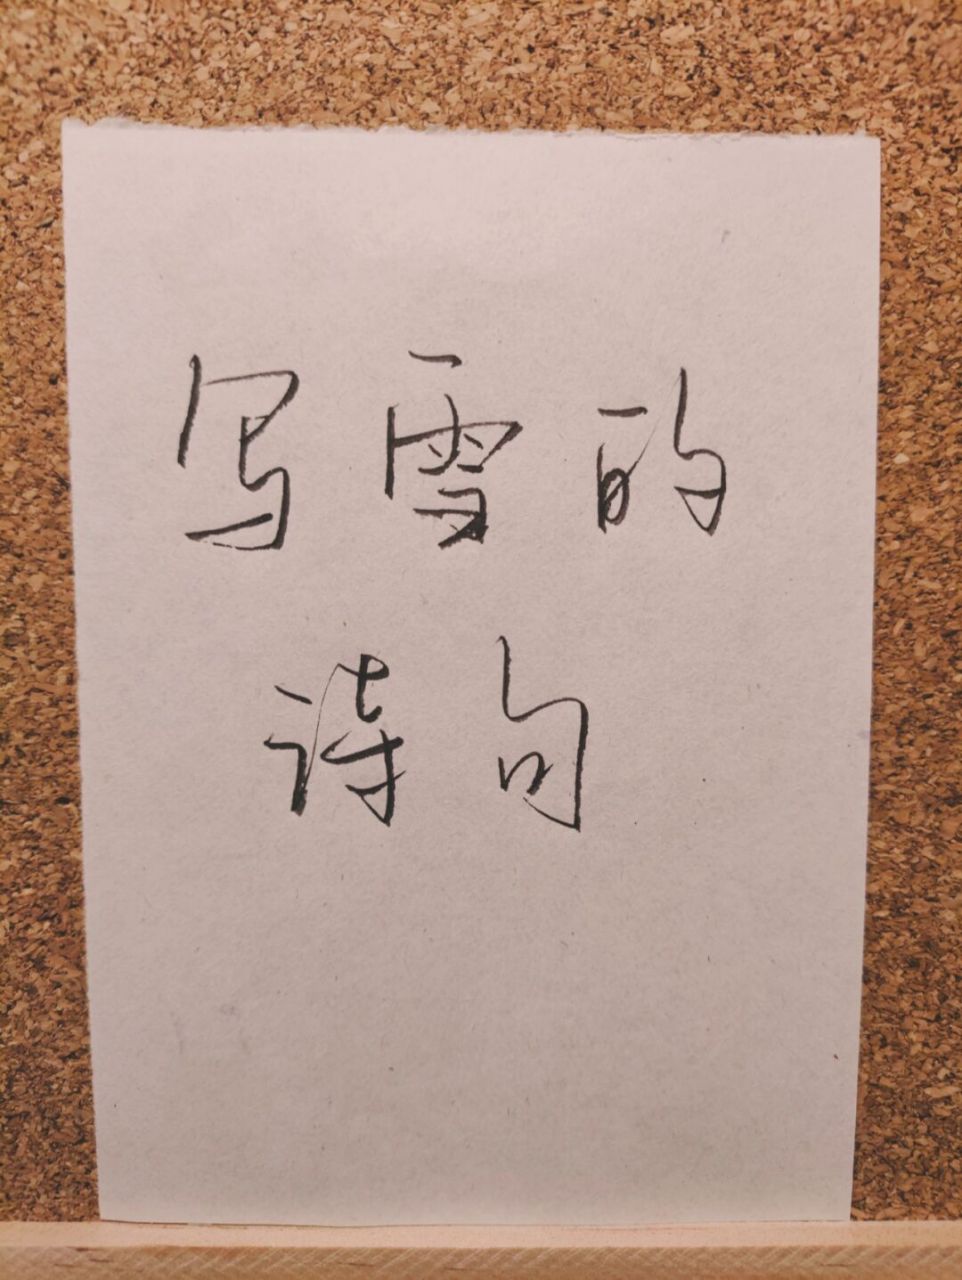 写雪的
诗句